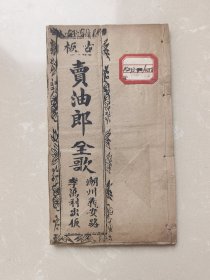 古板
賣油郎全歌
潮州義安路
李萬利出版